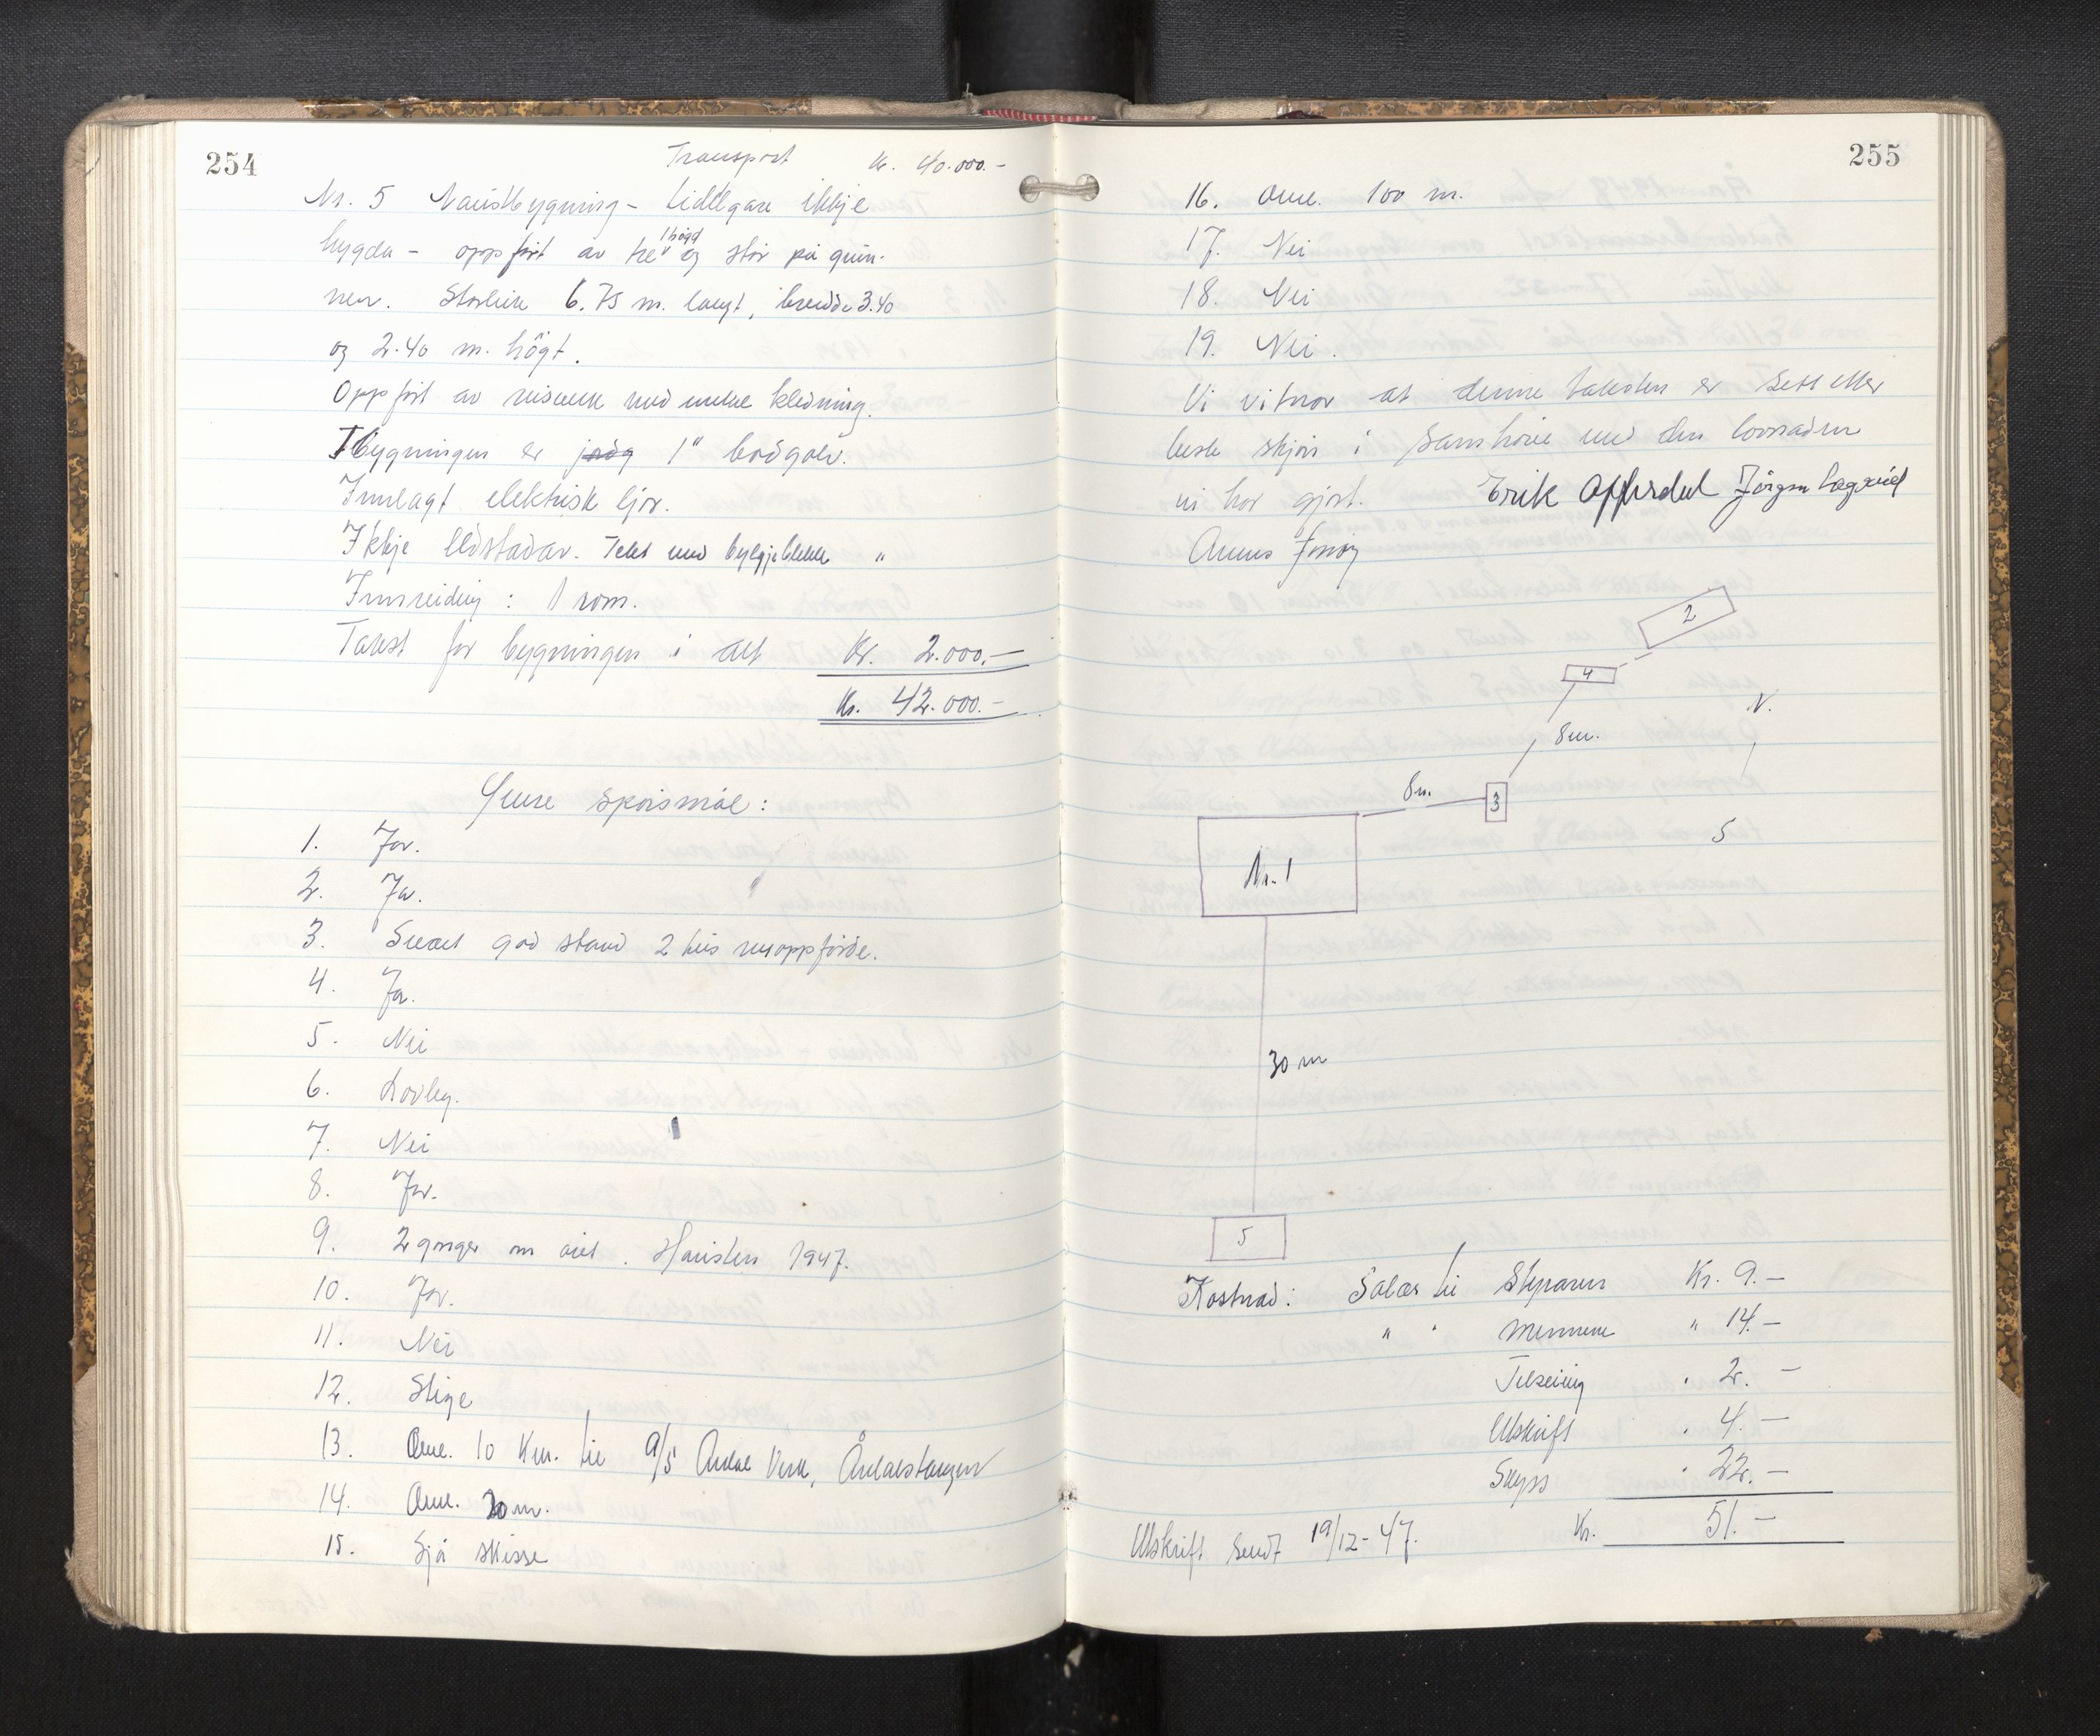 254
Transport Kr. 40.000.-
Nr. 5 Naustbygning - tidlegare ikkje
bygda - oppført av tre 1 høgd og står på grun-
nen. Storleik 6.75 m. langt, breidde 3.40
og 2.40 m. högt.
Oppført av reisverk med enkel kledning.
I bygningen er 1" bordgolv.
Innlagt elektrisk ljos.
Ikkje eldstadar. Tekt med bylgjeblekk "
Innreiding : 1 rom.
Takst for bygningen i alt Kr. 2.000.-
Kr. 42.000.-
spørsmål :
1. Ja.
2. Ja.
3. Svært god stand 2 hus nyoppførde.
4. Ja.
5. Nei
6. Lovleg.
7. Nei
8. Ja.
9. 2 gonger om året. Hausten 1947.
10. Ja.
11. Nei
12. Stige
13. Oml. 10 Km. til A/S Årdal Verk, Årdalstangen
14. Oml. 20 m.
15. Sjå skisse
255
16. Oml. 100 m.
17. Nei
18. Nei
19. Nei.
Vi vitnar at denne taksten er sett etter
beste skjøn i samhøve med den lovnaden
vi har gjort. Erik Jørgen Lægreid
2
4
N.
8 m.
8 m.
3
S
Nr. 1
30 m
5
Kostnad: Salær til Styraren Kr. 9.-
" " mennene " 14.-
Tilseiing " 2.-
Utskrift " 4.-
Skyss " 22.-
Kr. 51.-
Utskrift sendt 19/12-47.